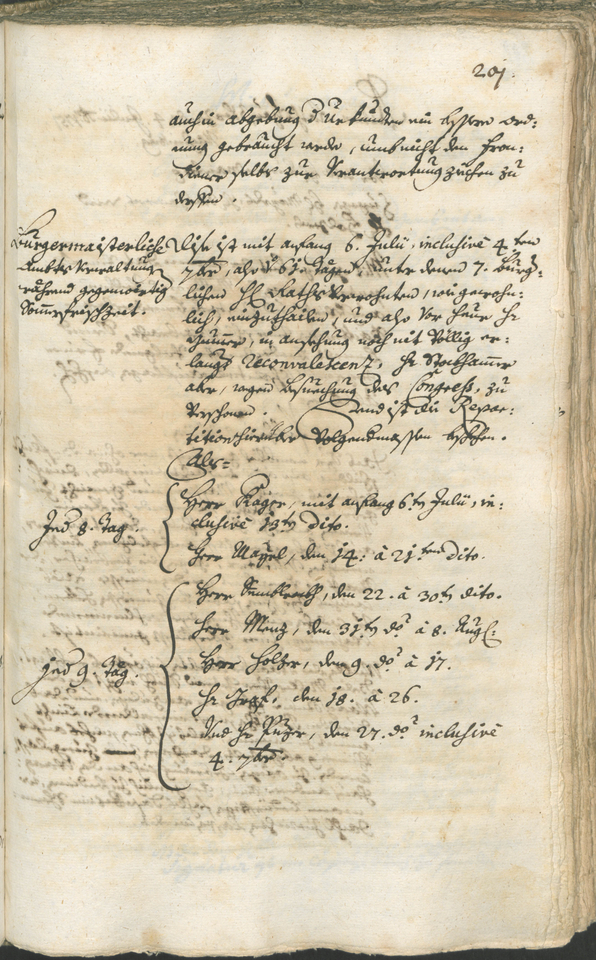 201.
auch in abgebung d Urkunden ein bessere ord:
nung gebraucht werde, umb nicht den Fron:
selbs zur Verantwortung ziehen zu
derffen.
Burgermaisterliche
Ambts Verwaltung
während gegenwertig
Sommerfrischzeit.
Dise ist mit anfang 6. Julii, inclusive 4ten
7bris, also 61. Tägen, unter denen 7. burg:
lichen HH Raths Verwohnten, wie gewohn:
lich, einzuthailen, und also vor heur Hr
in ansehung noch nit völlig er:
langt reconvalescenz, Hr Stockhammer
aber, wegen besuechung des Congress, zu
verschonen. Send ist die Repar:
tition hierüber volgendmassen beschehen.
Als:
Jed 8. Tag.
Herr Kager, mit anfang 6ten Julii, in:
clusive 13ten dito.
Herr Mayrl, den 14: à 21ten dito.
Jed 9. Tag.
Herr den 22. à 30ten dito.
Herr Menz, den 31ten do à 8. Aug:
Herr Holzer, den 9. do à 17.
Hr den 18. à 26.
Und Hr den 27. do inclusivè
4. 7bris.